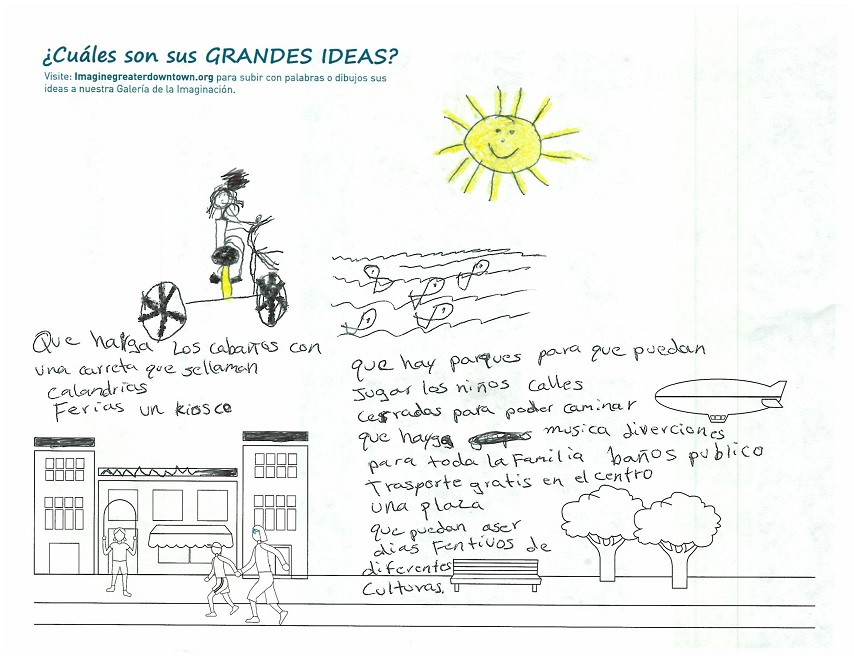 ¿Cuáles son sus GRANDES IDEAS?
Visite: Imaginegreaterdowntown.org para subir con palabras o dibujos sus
ideas a nuestra Galería de la Imaginación.
Que haiga Los cabarros con
una carreta que sellaman
calandrias
Ferias un kiosco
que hay parques para que puedan
Jugar los niños calles
cerradas para poder caminar
que hayga musica diverciones
para toda la Familia baños publico
Trasporte gratis en el centro
una plaza
que puedan aser
dias Fentivos de
diferentes
Culturas.